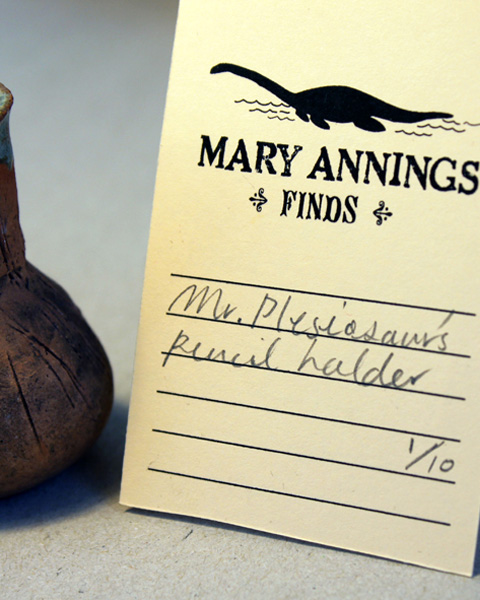 MARY ANNINGS
FINDS
Mr. Plysiosaur's
pencil holder
1/10